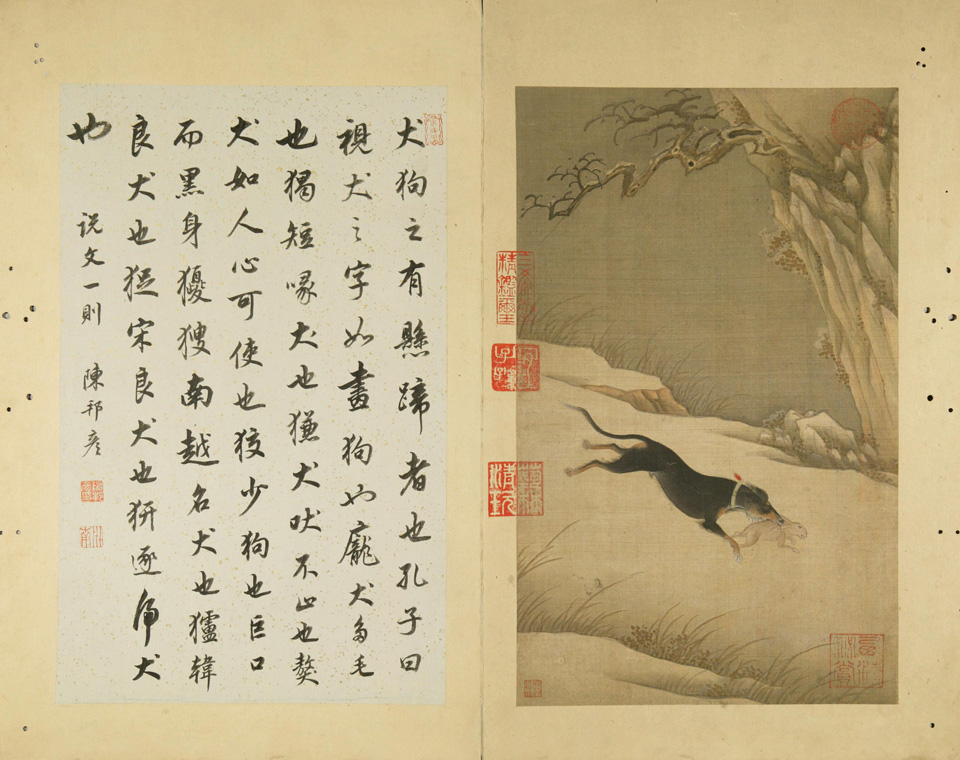 犬狗之有懸蹄者也孔子曰
視犬之字如畫狗也龐犬多毛
也猲短喙犬也㺌犬吠不止也獒
犬如人心可使也狡少狗也巨口
而黑身獿獀南越名犬也獹韓
良犬也宋良犬也逐虎犬
也
説文一則 陳邦彦
三希堂精鑑璽
宜子孫